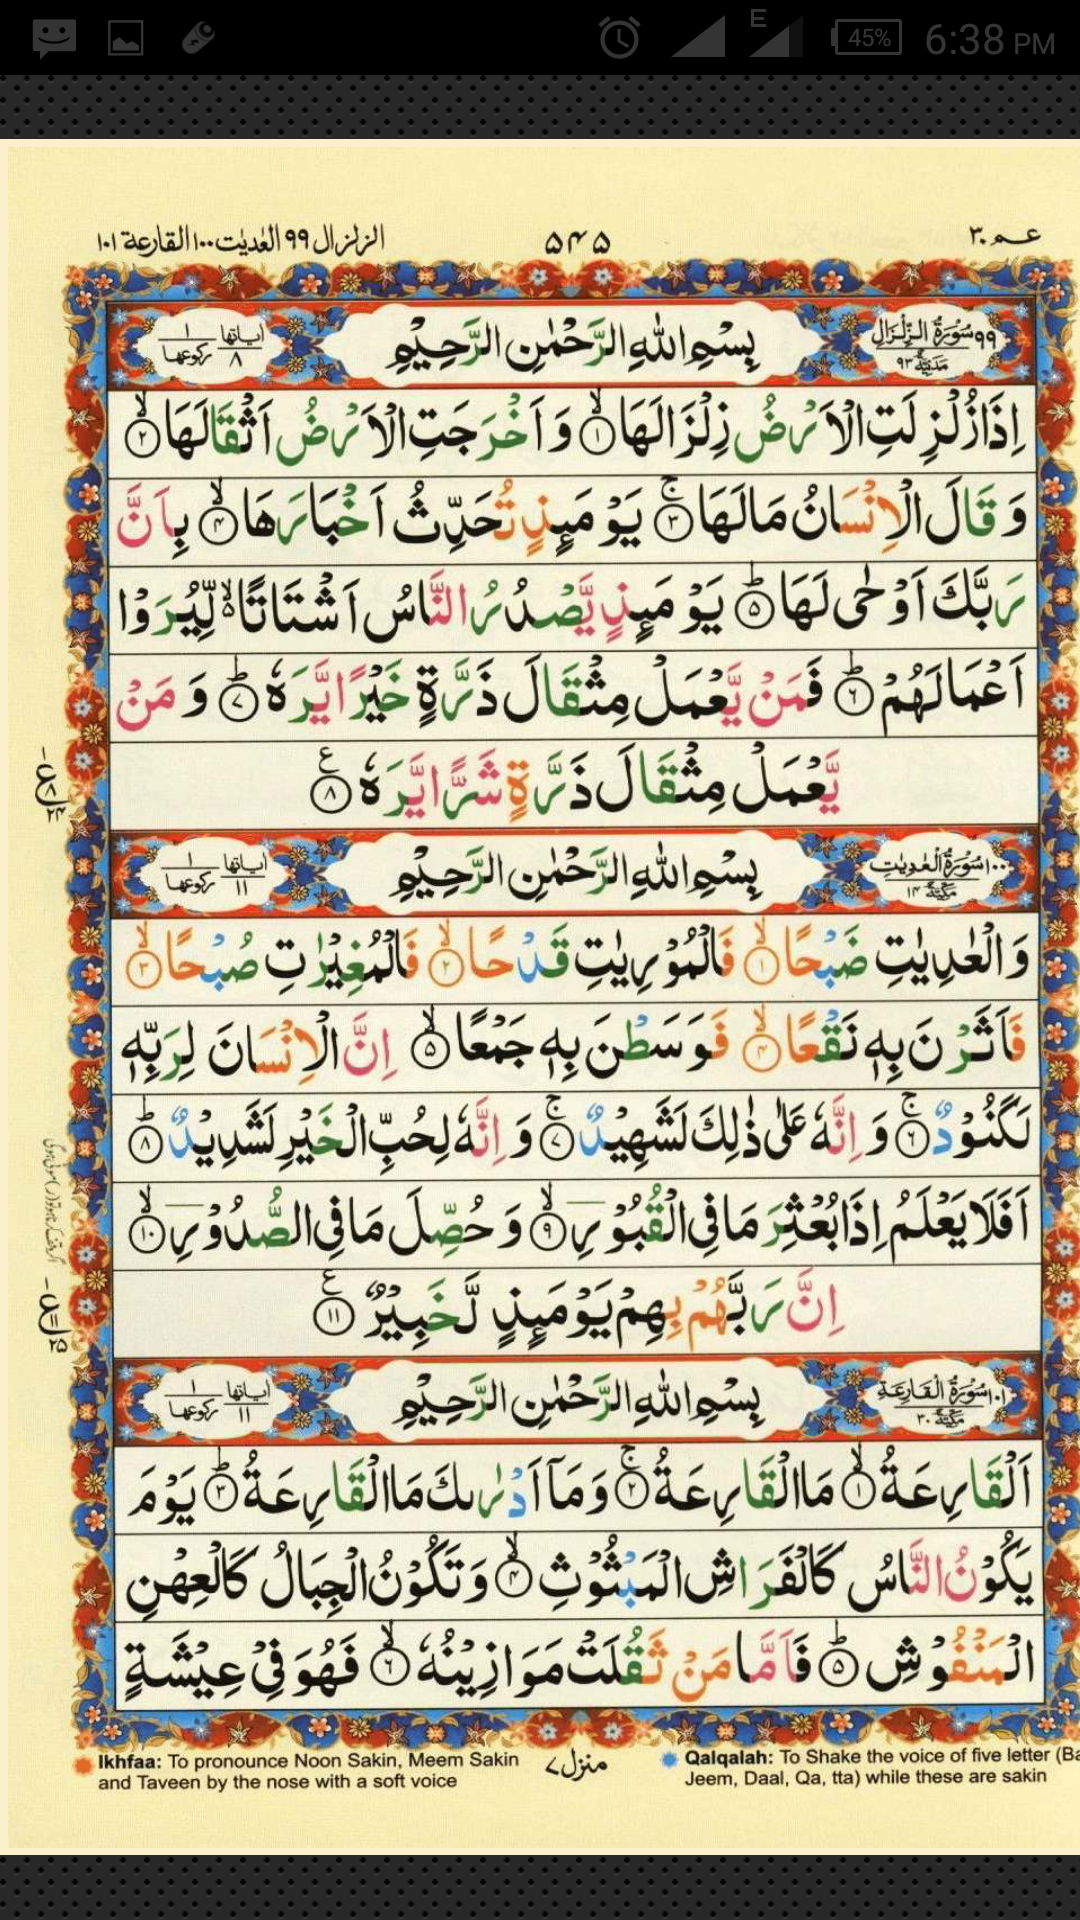 45% 6:38 PM
E
عم ٣٠
۵۴۵
الزلزال ٩٩ العٰديٰت ١٠٠ القارعة ١٠١
٩٩ سُوْرَةُ الزِّلْزَالِ مَدَنِيَّةٌ ٩٣
بِسْمِ اللّٰهِ الرَّحْمٰنِ الرَّحِيْمِ
اٰياتها ٨ ركوعها ١
اِذَا زُلْزِلَتِ الْاَرْضُ زِلْزَالَهَا ۙ﴿١﴾ وَ اَخْرَجَتِ الْاَرْضُ اَثْقَالَهَا ۙ﴿٢﴾
وَ قَالَ الْاِنْسَانُ مَا لَهَا ۚ﴿٣﴾ يَوْمَئِذٍ تُحَدِّثُ اَخْبَارَهَا ۙ﴿۴﴾ بِاَنَّ
رَبَّكَ اَوْحٰى لَهَا ؕ﴿۵﴾ يَوْمَئِذٍ يَّصْدُرُ النَّاسُ اَشْتَاتًا ۙ۬ لِّيُرَوْا
اَعْمَالَهُمْ ؕ﴿۶﴾ فَمَنْ يَّعْمَلْ مِثْقَالَ ذَرَّةٍ خَيْرًا يَّرَهٗ ؕ﴿٧﴾ وَ مَنْ
يَّعْمَلْ مِثْقَالَ ذَرَّةٍ شَرًّا يَّرَهٗ ﴿٨﴾ ع
١٠٠ سُوْرَةُ الْعٰدِيٰتِ مَكِّيَّةٌ ١۴
بِسْمِ اللّٰهِ الرَّحْمٰنِ الرَّحِيْمِ
اٰياتها ١١ ركوعها ١
وَ الْعٰدِيٰتِ ضَبْحًا ۙ﴿١﴾ فَالْمُوْرِيٰتِ قَدْحًا ۙ﴿٢﴾ فَالْمُغِيْرٰتِ صُبْحًا ۙ﴿٣﴾
فَاَثَرْنَ بِهٖ نَقْعًا ۙ﴿۴﴾ فَوَسَطْنَ بِهٖ جَمْعًا ۙ﴿۵﴾ اِنَّ الْاِنْسَانَ لِرَبِّهٖ
لَكَنُوْدٌ ۚ﴿۶﴾ وَ اِنَّهٗ عَلٰى ذٰلِكَ لَشَهِيْدٌ ۚ﴿٧﴾ وَ اِنَّهٗ لِحُبِّ الْخَيْرِ لَشَدِيْدٌ ؕ﴿٨﴾
اَفَلَا يَعْلَمُ اِذَا بُعْثِرَ مَا فِي الْقُبُوْرِ ۙ﴿٩﴾ وَ حُصِّلَ مَا فِي الصُّدُوْرِ ۙ﴿١٠﴾
اِنَّ رَبَّهُمْ بِهِمْ يَوْمَئِذٍ لَّخَبِيْرٌ ﴿١١﴾ ع
١٠١ سُوْرَةُ الْقَارِعَةِ مَكِّيَّةٌ ٣٠
بِسْمِ اللّٰهِ الرَّحْمٰنِ الرَّحِيْمِ
اٰياتها ١١ ركوعها ١
اَلْقَارِعَةُ ۙ﴿١﴾ مَا الْقَارِعَةُ ۚ﴿٢﴾ وَ مَاۤ اَدْرٰىكَ مَا الْقَارِعَةُ ؕ﴿٣﴾ يَوْمَ
يَكُوْنُ النَّاسُ كَالْفَرَاشِ الْمَبْثُوْثِ ۙ﴿۴﴾ وَ تَكُوْنُ الْجِبَالُ كَالْعِهْنِ
الْمَنْفُوْشِ ؕ﴿۵﴾ فَاَمَّا مَنْ ثَقُلَتْ مَوَازِيْنُهٗ ۙ﴿۶﴾ فَهُوَ فِيْ عِيْشَةٍ
Ikhfaa: To pronounce Noon Sakin, Meem Sakin
and Taveen by the nose with a soft voice
منزل ٧
Qalqalah: To Shake the voice of five letter (Ba
Jeem, Daal, Qa, tta) while these are sakin